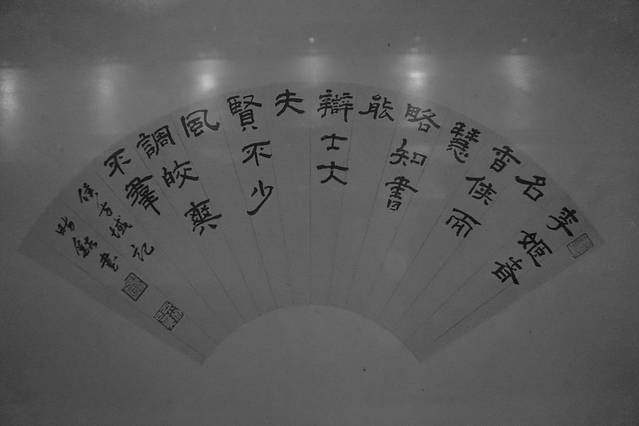 李姬者
名
香俠而
慧
略知書
能
辯士大
夫
賢不少
風
調皎爽
不羣
侯方域記
書